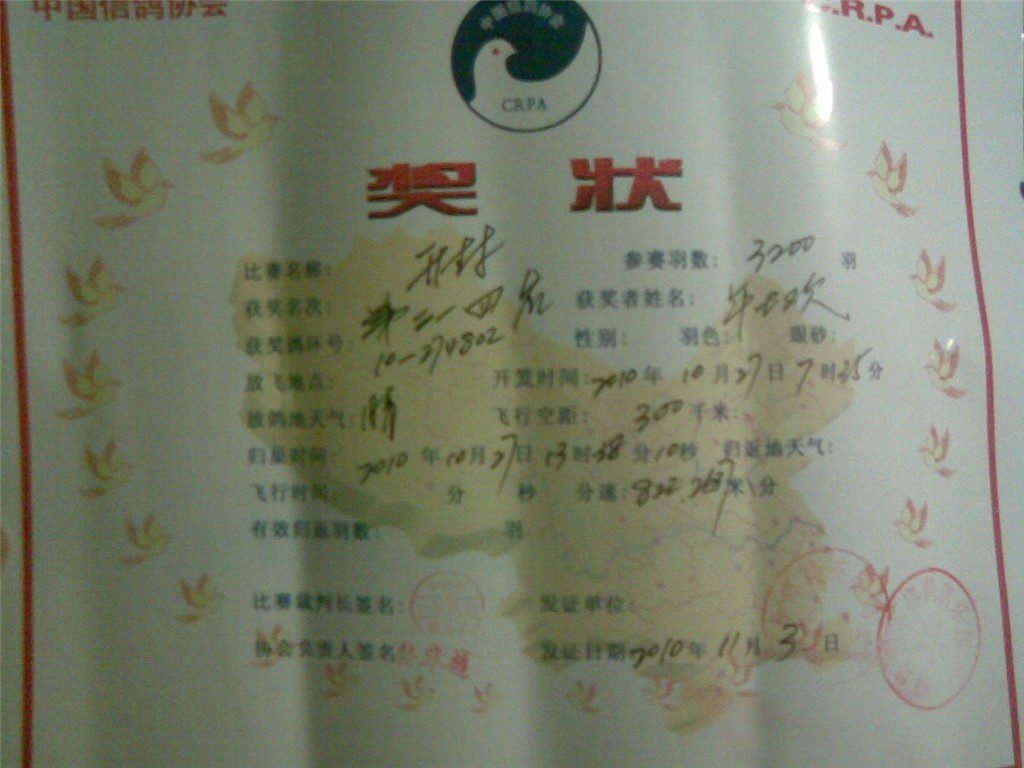 中国信鸽协会 C.R.P.A.
中国信鸽协会
CRPA
奖 状
比赛名称: 开封 参赛羽数: 3200 羽
获奖名次: 第二一四名 获奖者姓名:
获奖鸽环号: 10-274802 性别: 羽色: 眼砂:
放飞地点: 开笼时间: 2010 年 10 月 27 日 7 时 25 分
放鸽地天气: 晴 飞行空距: 300 千米:
归巢时间: 2010 年 10 月 27 日 13 时 38 分 10 秒 归返地天气:
飞行时间: 分 秒 分速: 822.267 米\分
有效归返羽数: 羽
比赛裁判长签名: 发证单位:
协会负责人签名 发证日期 2010 年 11 月 3 日